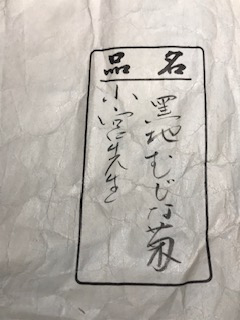 品名
黒地むじな菊
小宮先生